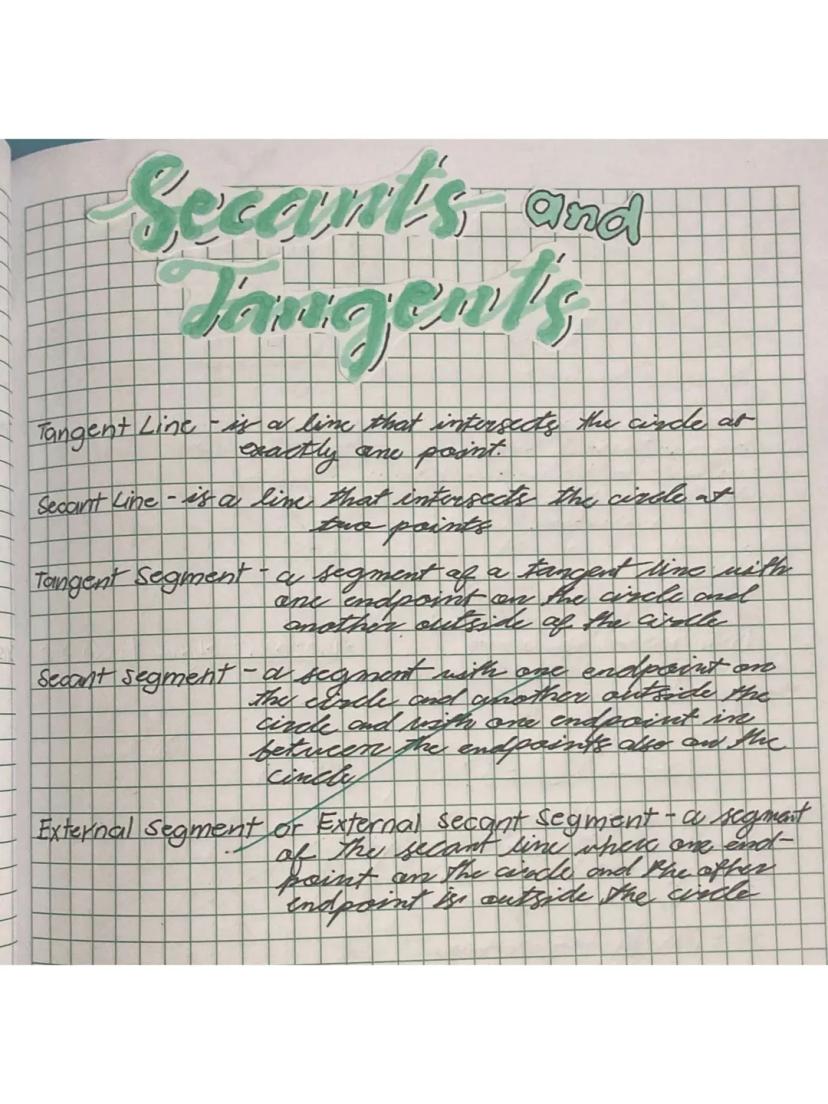 Secants and
Tangents
Tangent Line - is a line that intersects the circle at
exactly one point.
Secant Line - is a line that intersects the circle at
two points
Tangent Segment - a segment of a tangent line with
one endpoint on the circle and
another outside of the circle
Secant segment - a segment with one endpoint on
the circle and another outside the
circle and with one endpoint in
between the endpoints also on the
circle
External Segment or External secant segment - a segment
of the secant line where one end-
point on the circle and the other
endpoint is outside the circle